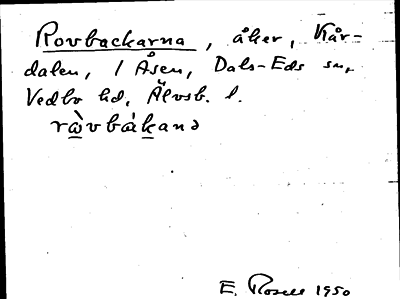 Rovbackarna, åker, Kår-
dalen, 1 Åsen, Dals-Eds sn,
Vedbo hd, Älvsb. l.
råvbákanə
E. Rosell 1950